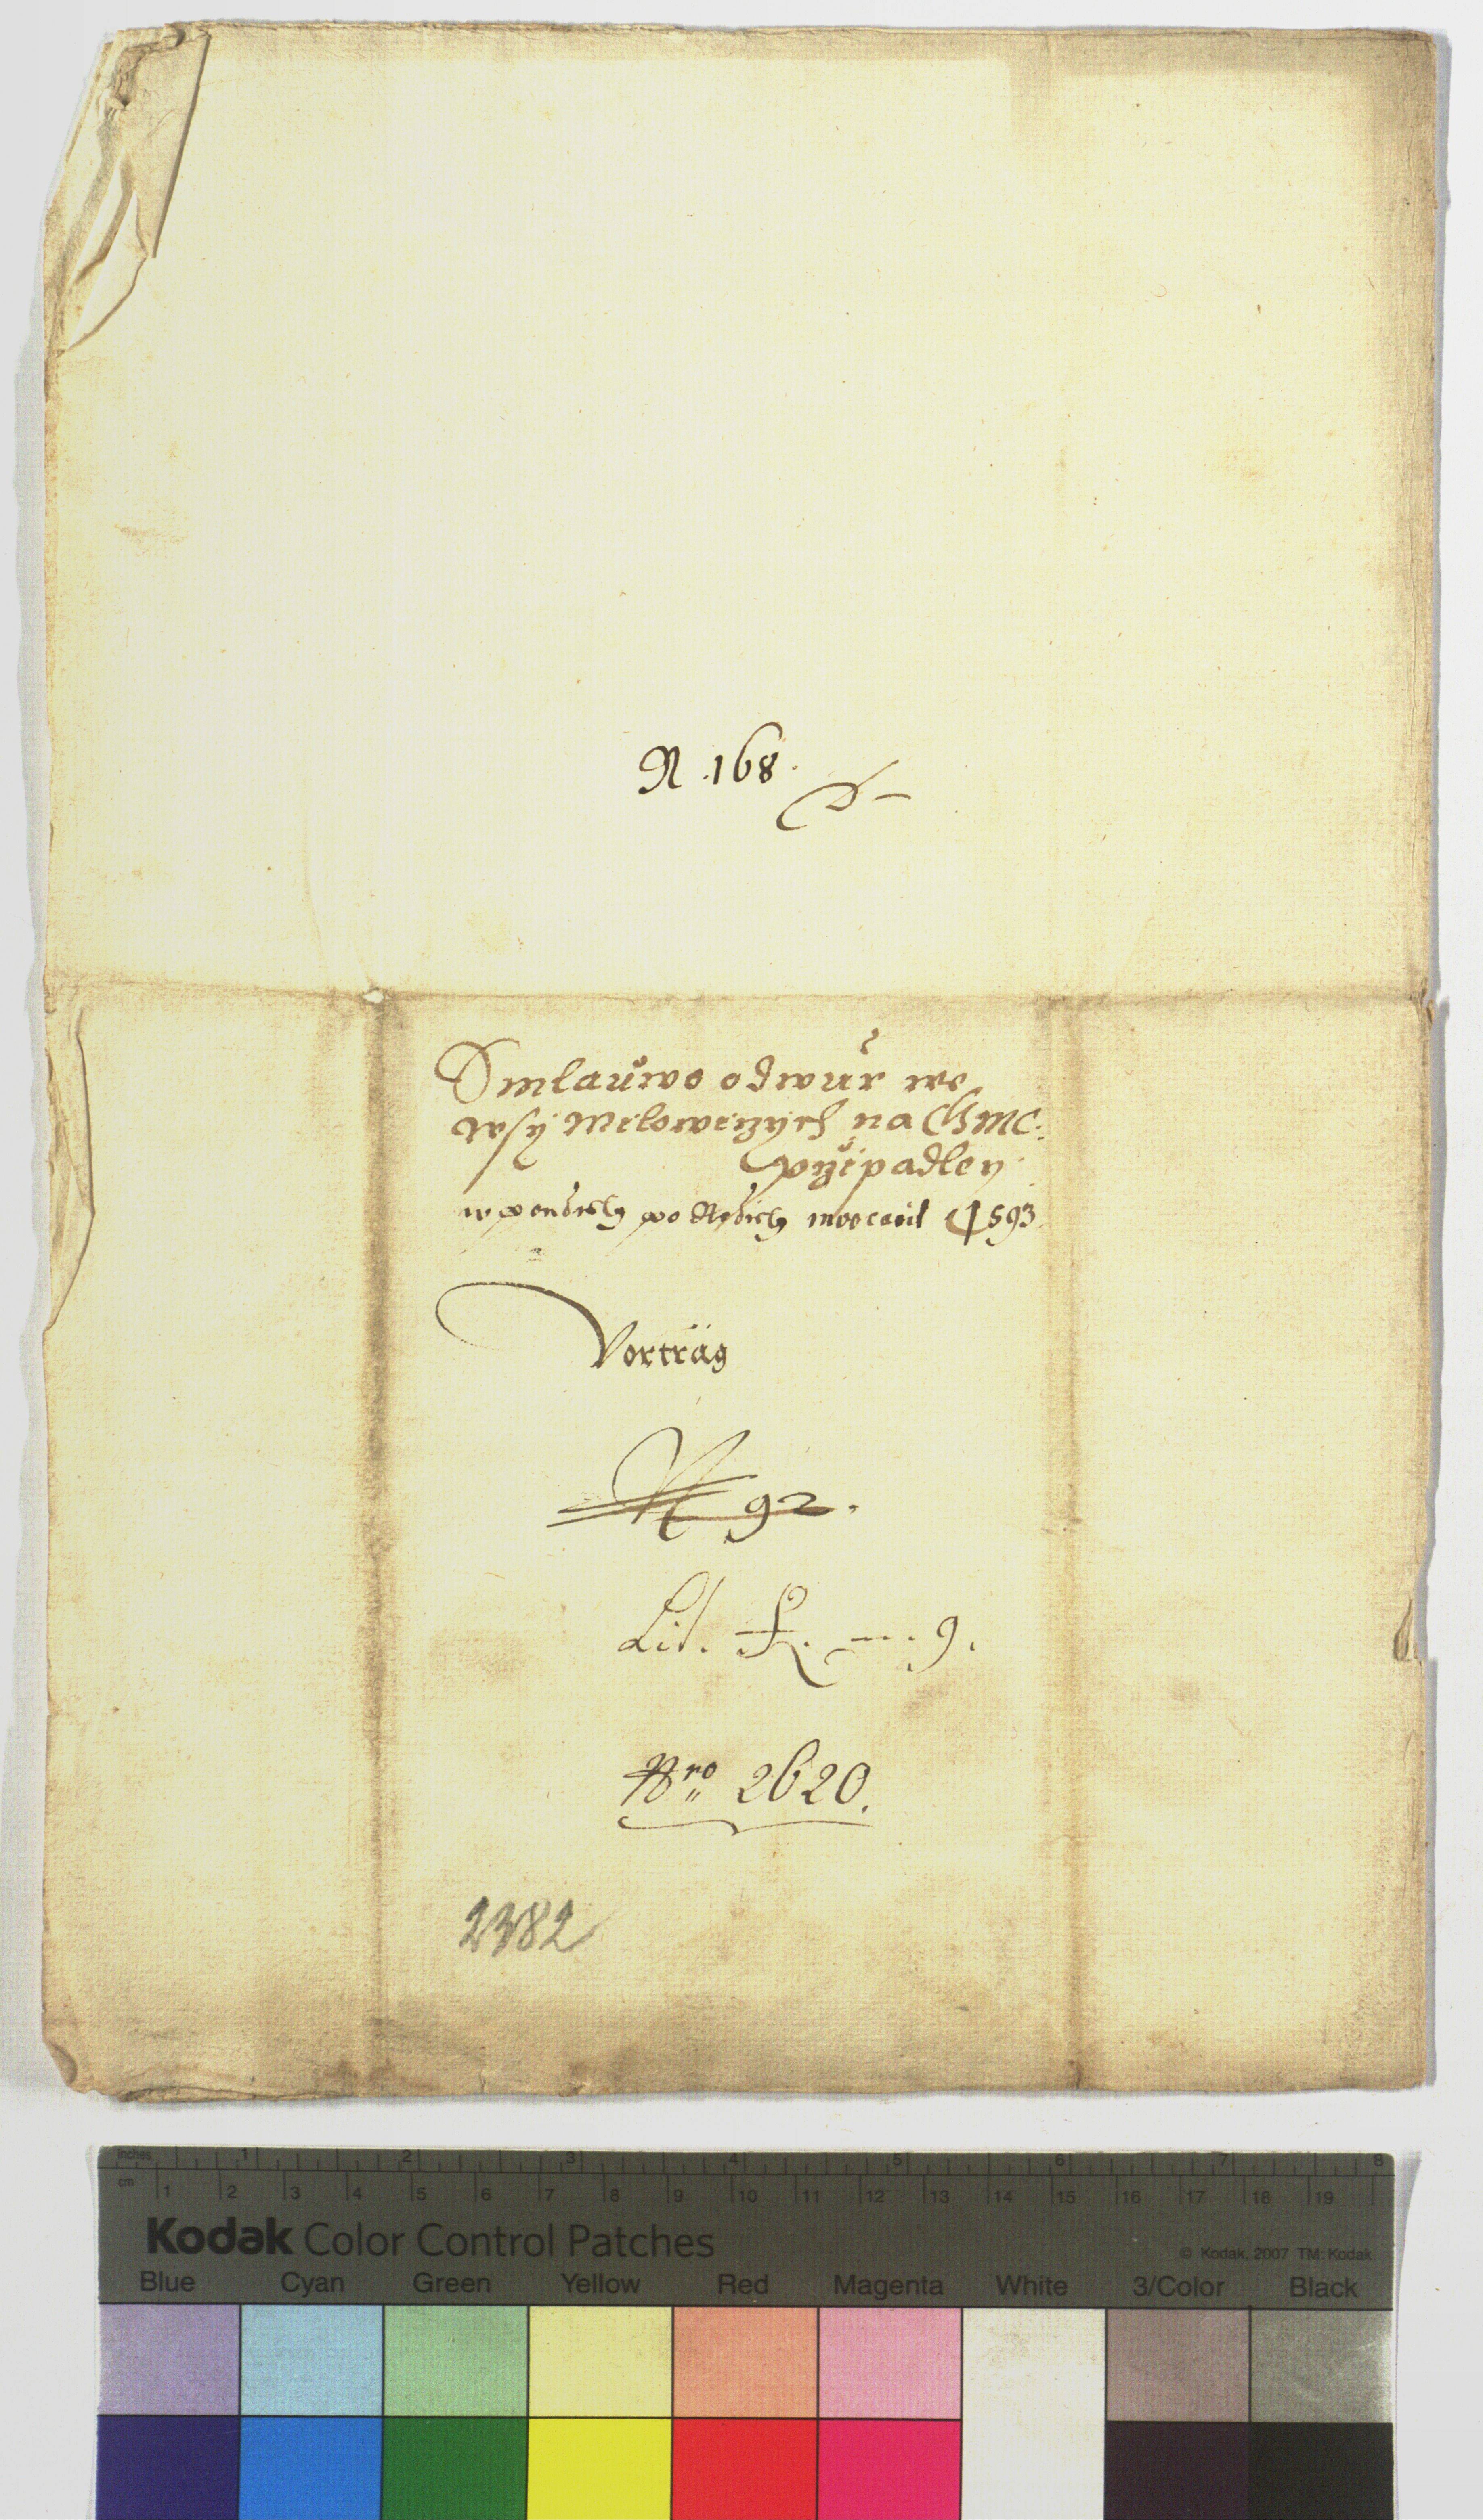 N .168.
Smlauwo odwur we
wsy Milowiczych na GHMC:
przipadley
w pondiely po Nedieli 1593
Vorträg
N 92.
Lit. L. — . 9.
Nro 2620.
2382
inches 1 2 3 4 5 6 7 8
cm 1 2 3 4 5 6 7 8 9 10 11 12 13 14 15 16 17 18 19
Kodak Color Control Patches
© Kodak, 2007 TM: Kodak
Blue Cyan Green Yellow Red Magenta White 3/Color Black